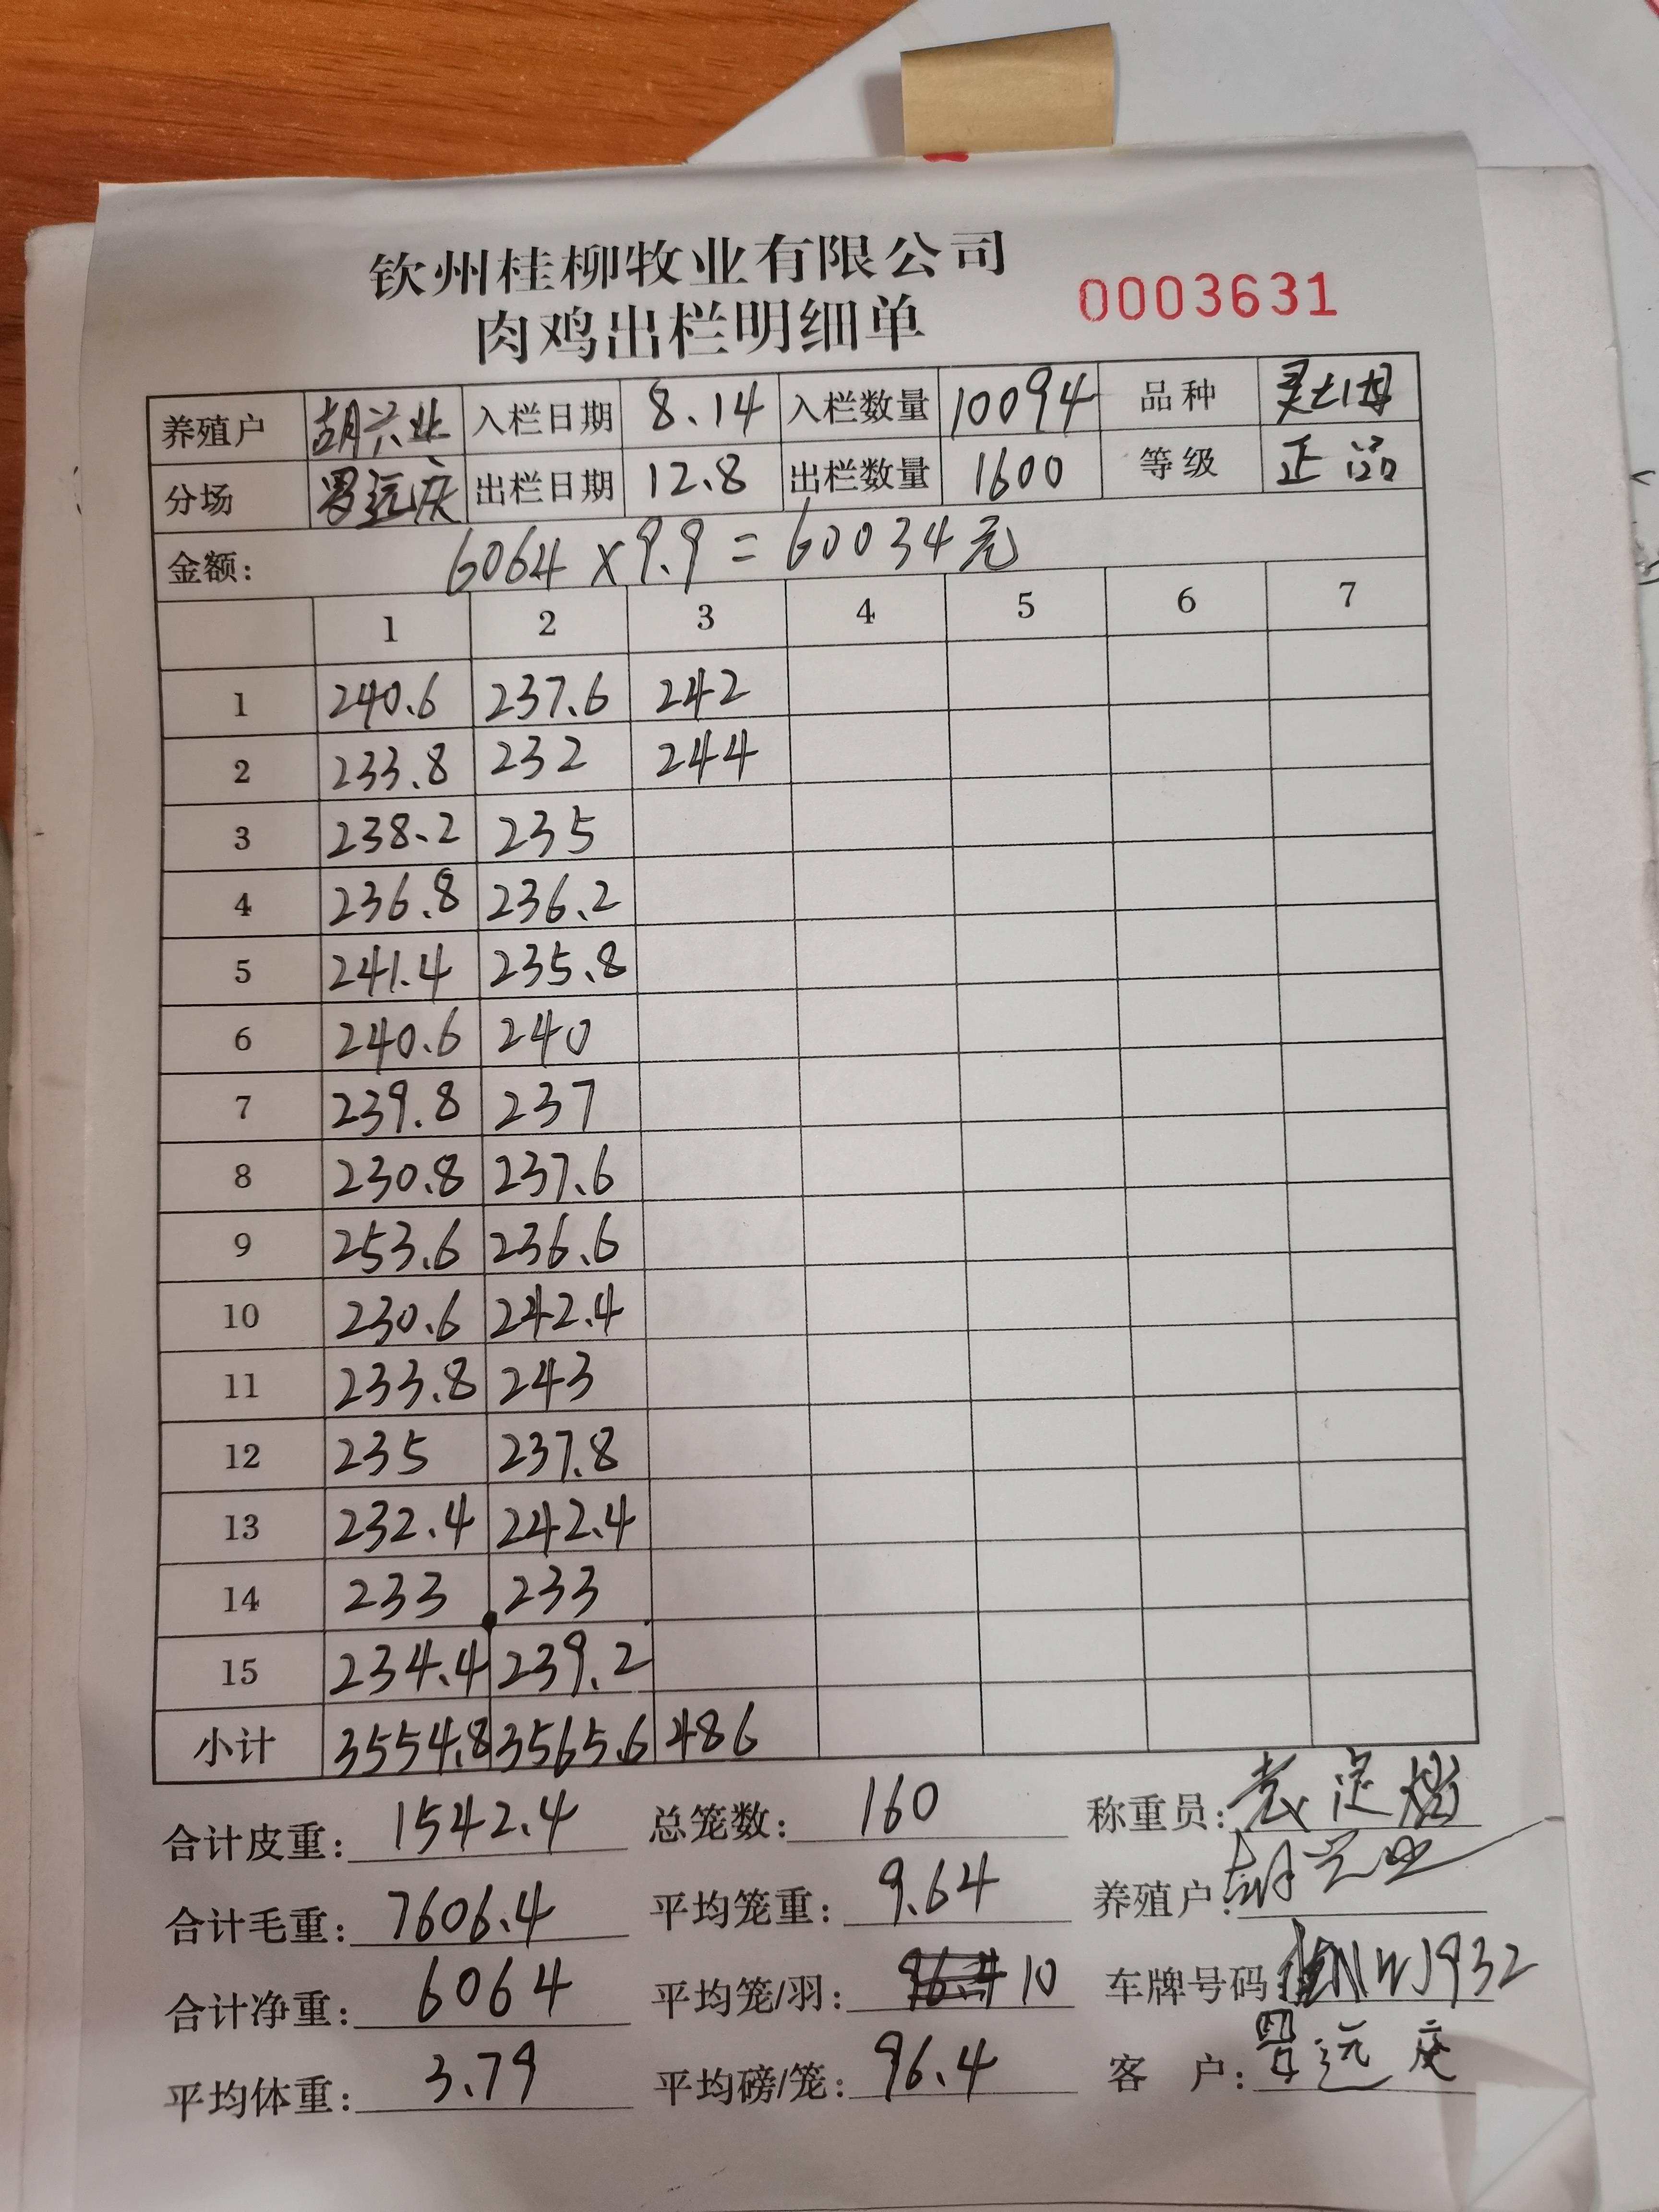 钦州桂柳牧业有限公司
肉鸡出栏明细单 0003631
养殖户 胡兴业 入栏日期 8.14 入栏数量 10094 品种
分场 远庆 出栏日期 12.8 出栏数量 1600 等级 正品
金额: 6064×9.9=60034元
1 2 3 4 5 6 7
1 240.6 237.6 242
2 233.8 232 244
3 238.2 235
4 236.8 236.2
5 241.4 235.8
6 240.6 240
7 239.8 237
8 230.8 237.6
9 253.6 236.6
10 230.6 242.4
11 233.8 243
12 235 237.8
13 232.4 242.4
14 233 233
15 234.4 239.2
小计 3554.8 3565.6 486
合计皮重: 1542.4 总笼数: 160 称重员:
合计毛重: 7606.4 平均笼重: 9.64 养殖户: 胡兴业
合计净重: 6064 平均笼/羽: 10 车牌号码 NWJ932
平均体重: 3.79 平均磅/笼: 96.4 客户: 远庆